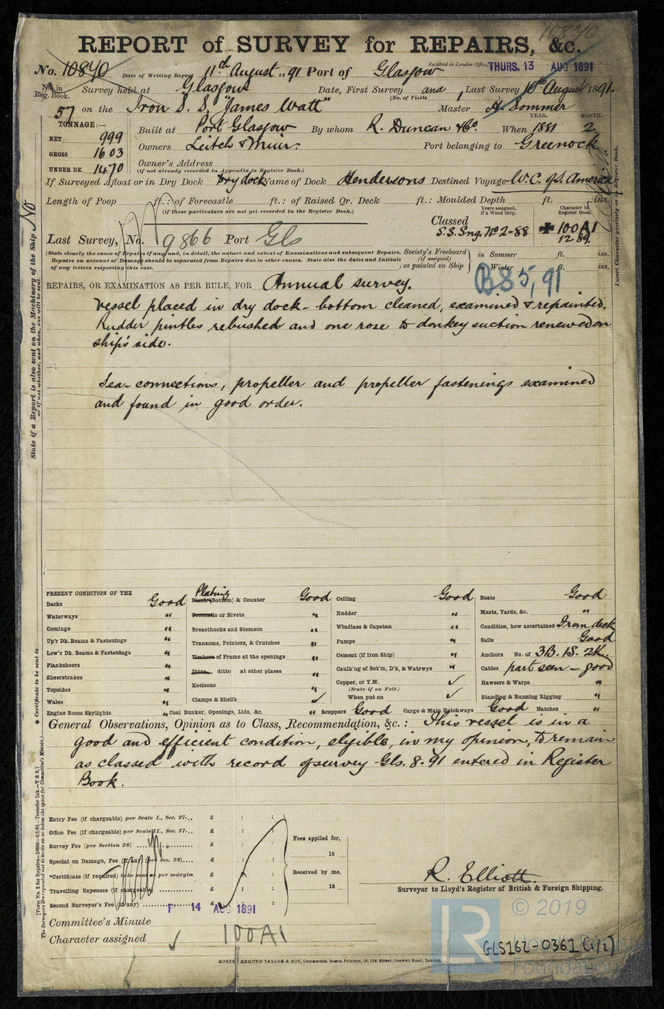 REPORT of SURVEY for REPAIRS, &c.
No. 10840 Date of Writing Report 11th August 1891 Port of Glasgow Received in London Office THURS. 13 AUG 1891
No. in Reg. Book. Survey held at Glasgow Date, First Survey and Last Survey 10th August 1891.
(No. of Visits
57 on the Iron S.S. "James Watt" Master H. Sommer
TONNAGE:— YEAR. MONTH.
NET 999 Built at Port Glasgow By whom R. Duncan & Co. When 1881 2
GROSS 1603 Owners Leitch & Muir. Port belonging to Greenock
UNDER DK. 1470 Owner's Address
(if not already recorded in Appendix to Register Book.)
If Surveyed Afloat or in Dry Dock Dry dock Name of Dock Hendersons Destined Voyage W.C. of S. America
Length of Poop ft.: of Forecastle ft.: of Raised Qr. Deck ft.: Moulded Depth ft. ins.
(If these particulars are not yet recorded in the Register Book.)
Years assigned, if a Wood Ship. Character in Register Book.
Classed S.S. Sng. No 2-88 100A1
12.89
Last Survey, No. 9866 Port Gls
(State clearly the cause of Repairs if any and, in detail, the nature and extent of Examinations and subsequent Repairs. Society's Freeboard (if assigned) as painted on Ship in Summer ft. ins.
Repairs on account of Damage should be separated from Repairs due to other causes. State also the dates and Initials Winter ft. ins.
of any letters respecting this case.)
B85,91
REPAIRS, OR EXAMINATION AS PER RULE, FOR Annual survey.
Vessel placed in dry dock – bottom cleaned, examined & repainted.
Rudder pintles rebushed and one rose to donkey suction renewed on
ship's side.
Sea-connections, propeller and propeller fastenings examined
and found in good order.
PRESENT CONDITION OF THE
Decks Good Plating (Bottom) & Counter Good Ceiling Good Boats Good
Waterways " or Rivets " Rudder " Masts, Yards, &c. "
Comings " Breasthooks and Stemson " Windlass & Capstan " Condition, how ascertained From deck
Up'r Dk. Beams & Fastenings " Transoms, Pointers, & Crutches " Pumps " Sails Good
Low'r Dk. Beams & Fastenings " of Frame at the openings " Cement (if Iron Ship) " Anchors No. of 3B. 1S. 2K.
Planksheers " Ditto ditto at other places " Caulk'ng of Bot'm, D'k, & Watrwys " Cables part seen – good
Sheerstrakes " Keelsons " Copper, or Y.M. Hawsers & Warps "
Topsides " (State if on Felt.)
Wales " Clamps & Shelfs When put on Standing & Running Rigging "
Engine Room Skylights " Coal Bunker, Openings, Lids, &c. " Scuppers Good Cargo & Main Hatchways Good Hatches "
General Observations, Opinion as to Class, Recommendation, &c.: This vessel is in a
good and efficient condition, eligible, in my opinion, to remain
as classed with record of survey Gls. 8.91 entered in Register
Book.
Entry Fee (if chargeable) per Scale I., Sec. 27... £ : :
Office Fee (if chargeable) per Scale II., Sec. 27... £ : : Fees applied for,
Survey Fee (per Section 28) £ : : 18
Special on Damage, Fee (if any) (per Sec. 28)... £ : :
*Certificate (if required) per margin £ : : Received by me,
Travelling Expenses (if chargeable) £ : : 18
Second Surveyor's Fee (if any) £ : :
R. Elliott
Surveyor to Lloyd's Register of British & Foreign Shipping.
F 14 AUG 1891
Committee's Minute
Character assigned 100A1
LR
© 2019
Foundation
GLS162-0361 (1/2)
State if a Report is also sent on the Machinery of the Ship No